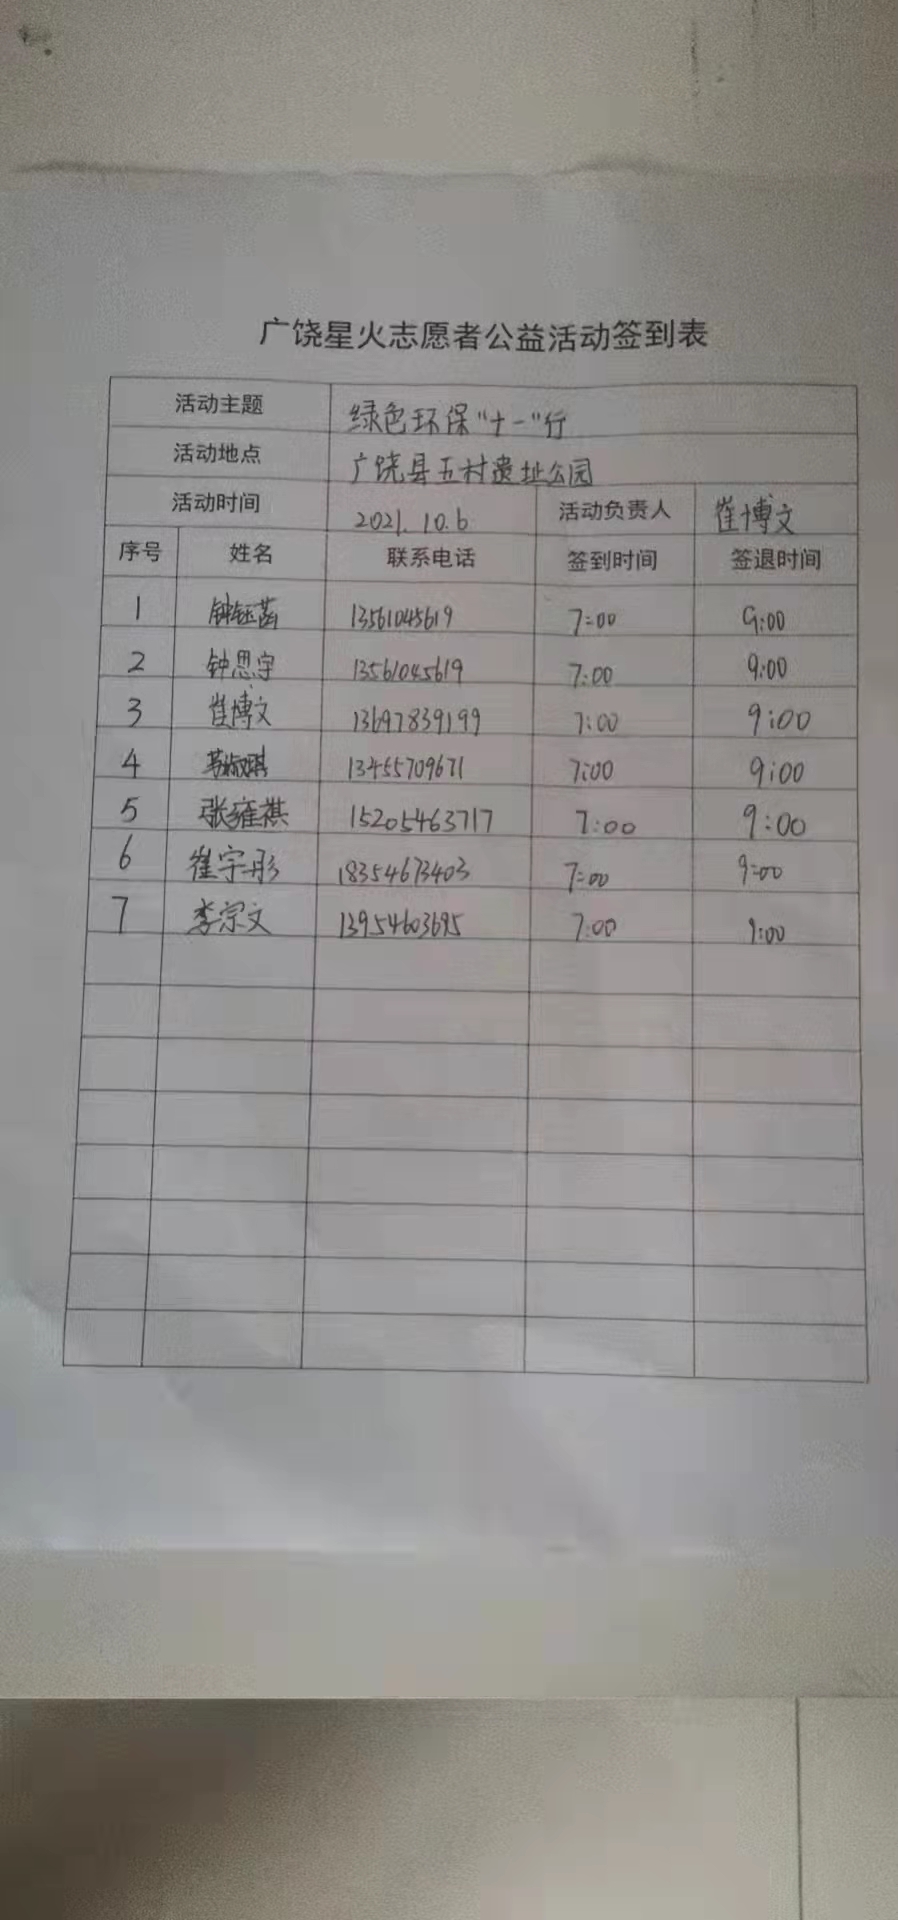 广饶星火志愿者公益活动签到表
活动主题 绿色环保"十一"行
活动地点 广饶县五村遗址公园
活动时间 2021.10.6 活动负责人 崔博文
序号 姓名 联系电话 签到时间 签退时间
1 钟钰菡 13561045619 7:00 9:00
2 钟思宇 13561045619 7:00 9:00
3 崔博文 13697839199 7:00 9:00
4 13455709671 7:00 9:00
5 张雍祺 15205463717 7:00 9:00
6 崔宇彤 18354673403 7:00 9:00
7 李宗文 13954603695 7:00 9:00